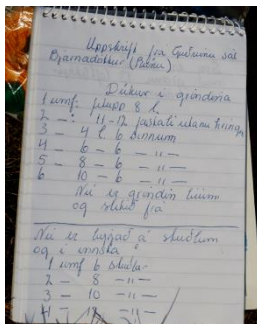 Uppskrift frá Guðrúnu sál
Bjarnadóttur
Dúkur í grindina
1 umf: plupp 8 l.
2 -:- 11-12 fastall utanu hring
3 - 4 l. 6 sinnum
4 - 6 - 6 -"-
5 - 8 - 6 -"-
6 10 - 6 -"-
Nú er grindin búin
og slitið frá
Nú er byrjað á stuðlum
og í innsta
1 umf 6 stuðla
2 - 8 -"-
3 - 10 -"-
4 - 12 -"-